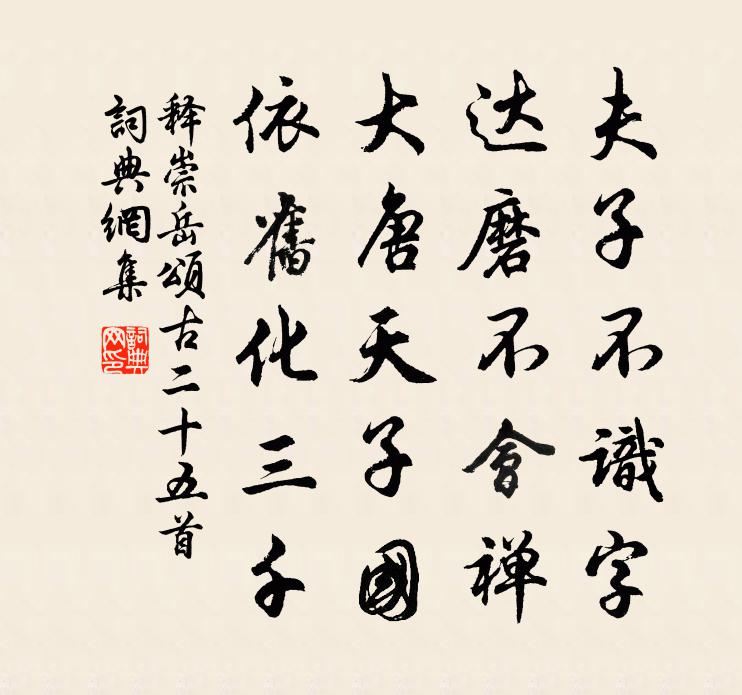 夫子不識字
达磨不會禅
大唐天子國
依舊化三千
释崇岳頌古二十五首
詞典網集
詞典网印